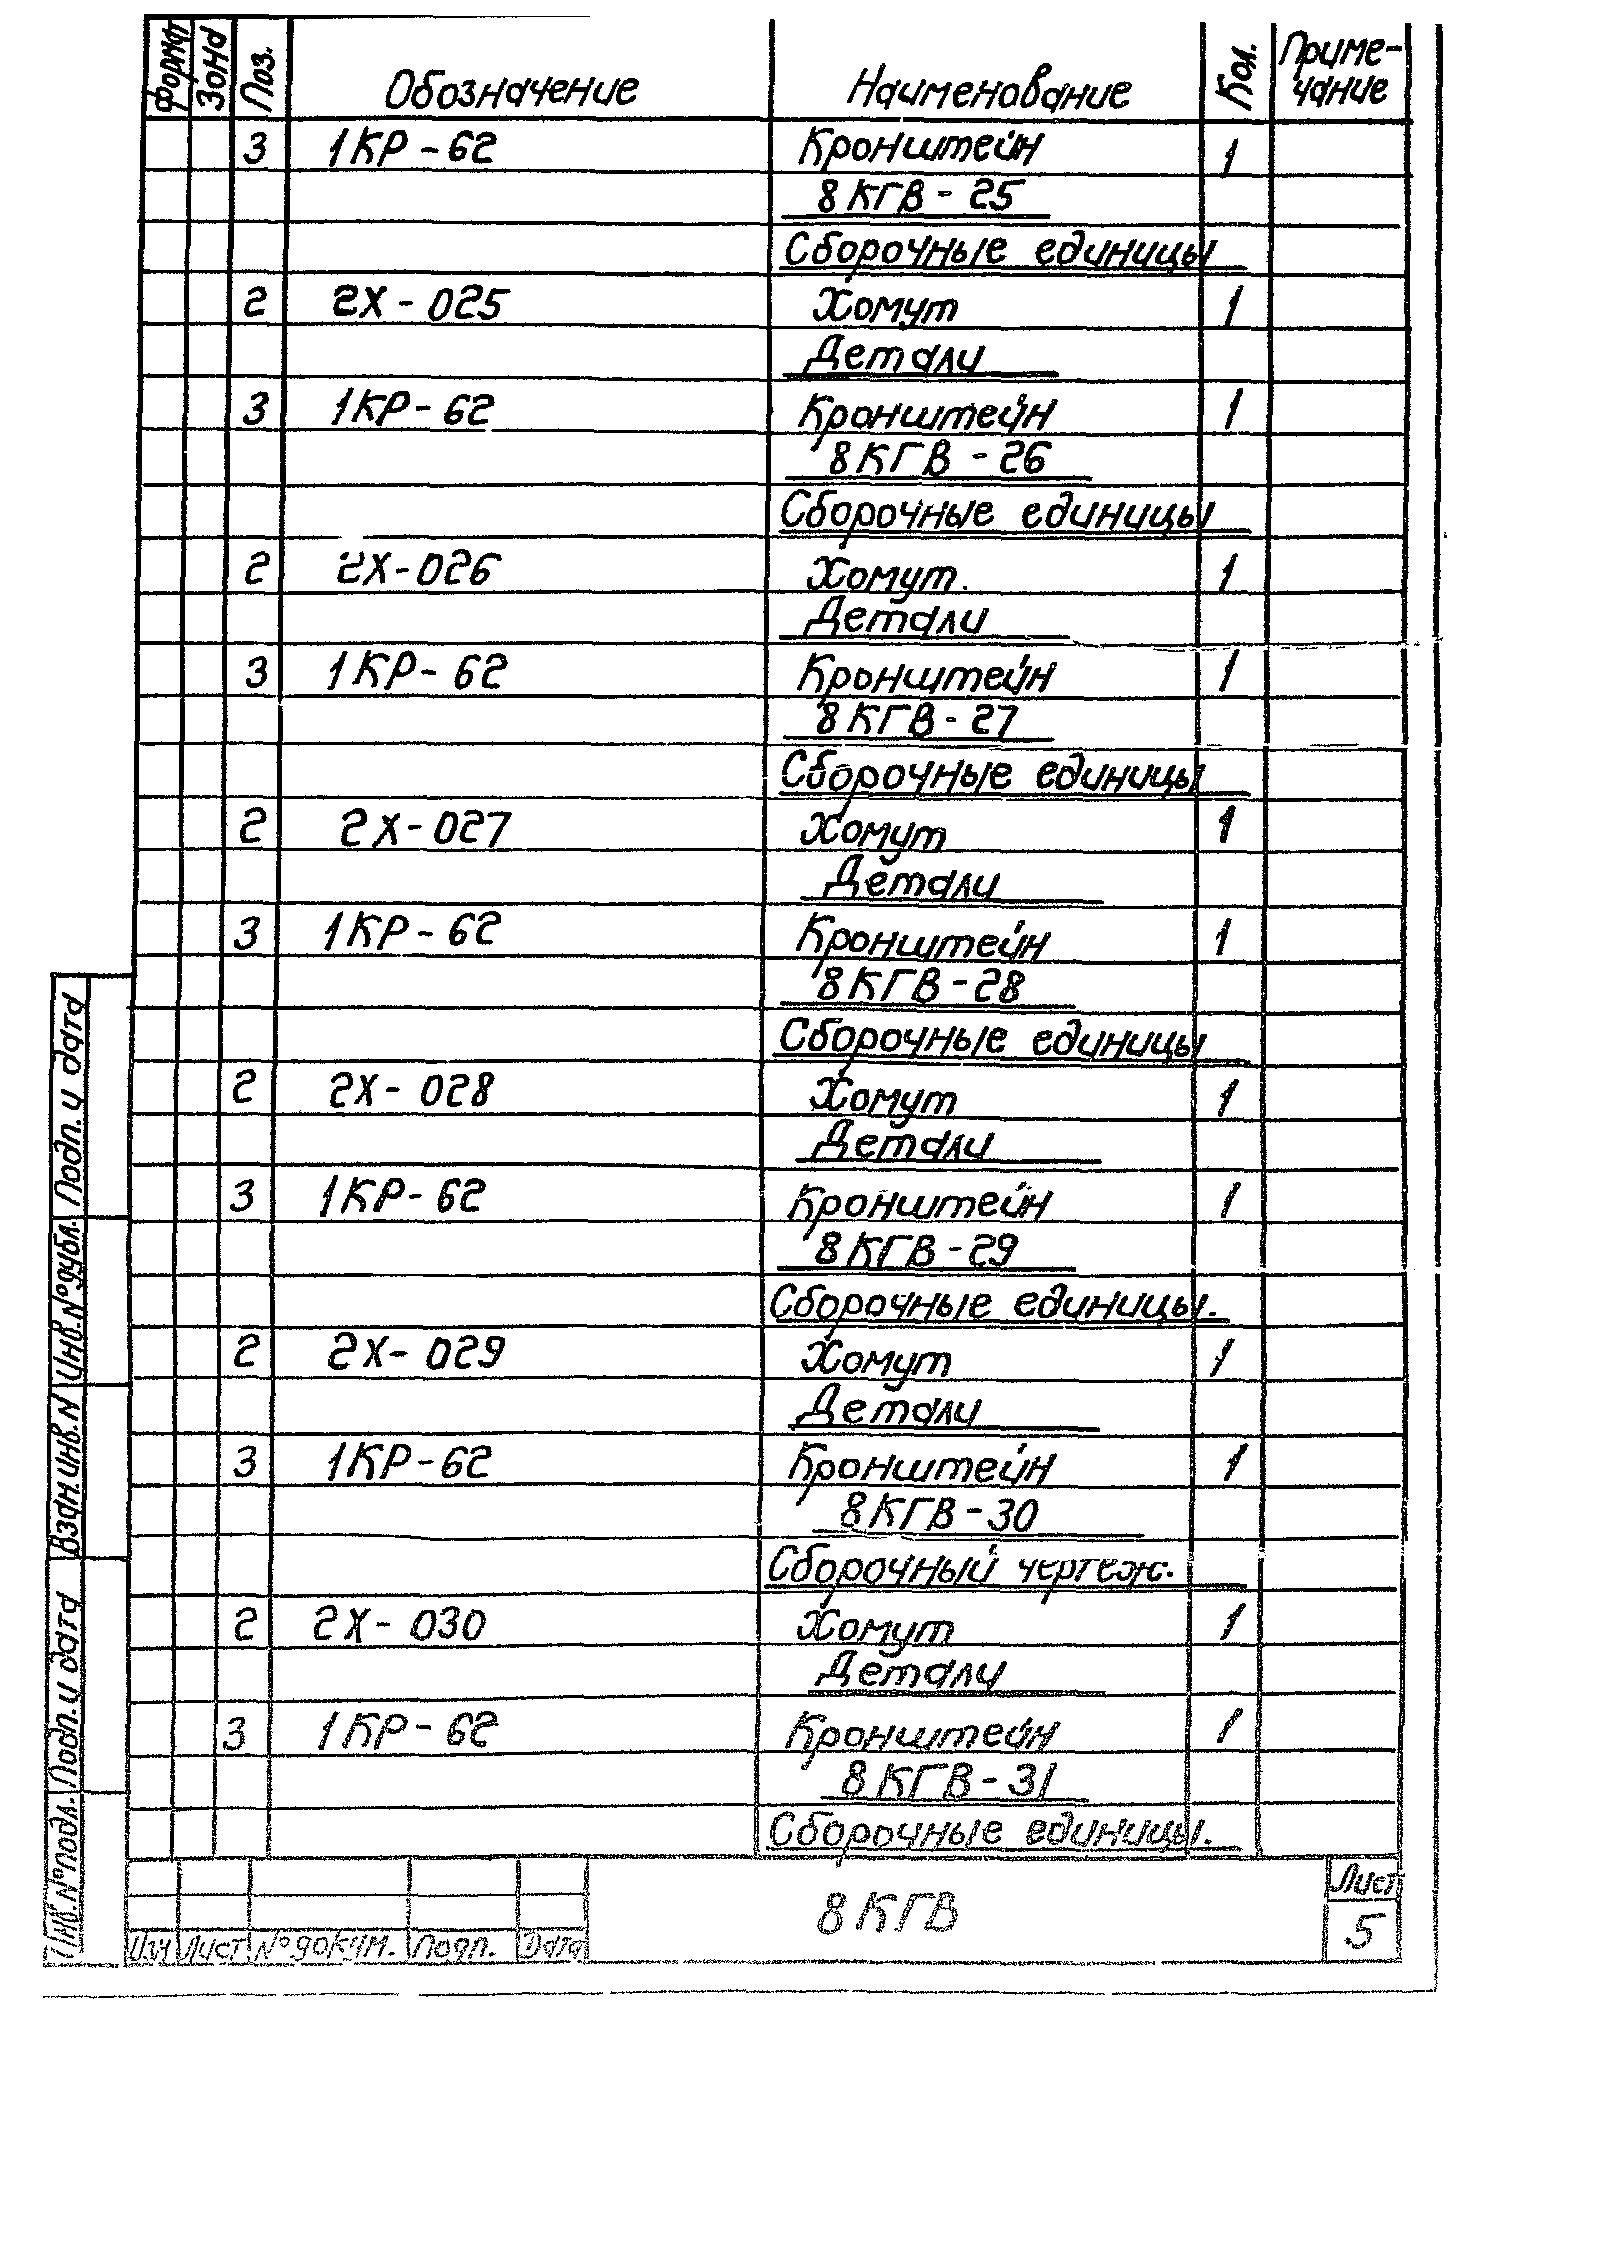 Форма Зона Поз. Обозначение Наименование Кол. Приме-
чание
3 1КР-62 Кронштейн 1
8КГВ-25
Сборочные единицы
2 2Х-025 Хомут 1
Детали
3 1КР-62 Кронштейн 1
8КГВ-26
Сборочные единицы
2 2Х-026 Хомут. 1
Детали
3 1КР-62 Кронштейн 1
8КГВ-27
Сборочные единицы
2 2Х-027 Хомут 1
Детали
3 1КР-62 Кронштейн 1
8КГВ-28
Сборочные единицы
2 2Х-028 Хомут 1
Детали
3 1КР-62 Кронштейн 1
8КГВ-29
Сборочные единицы.
2 2Х-029 Хомут 1
Детали
3 1КР-62 Кронштейн 1
8КГВ-30
Сборочный чертеж.
2 2Х-030 Хомут 1
Детали
3 1КР-62 Кронштейн 1
8КГВ-31
Сборочные единицы.
Подп. и дата
Инв. №дубл.
Взан. инв. N
Подп. и дата
Инв. №подл.
Изм Лист №докум. Подп. Дата
8КГВ
Лист
5